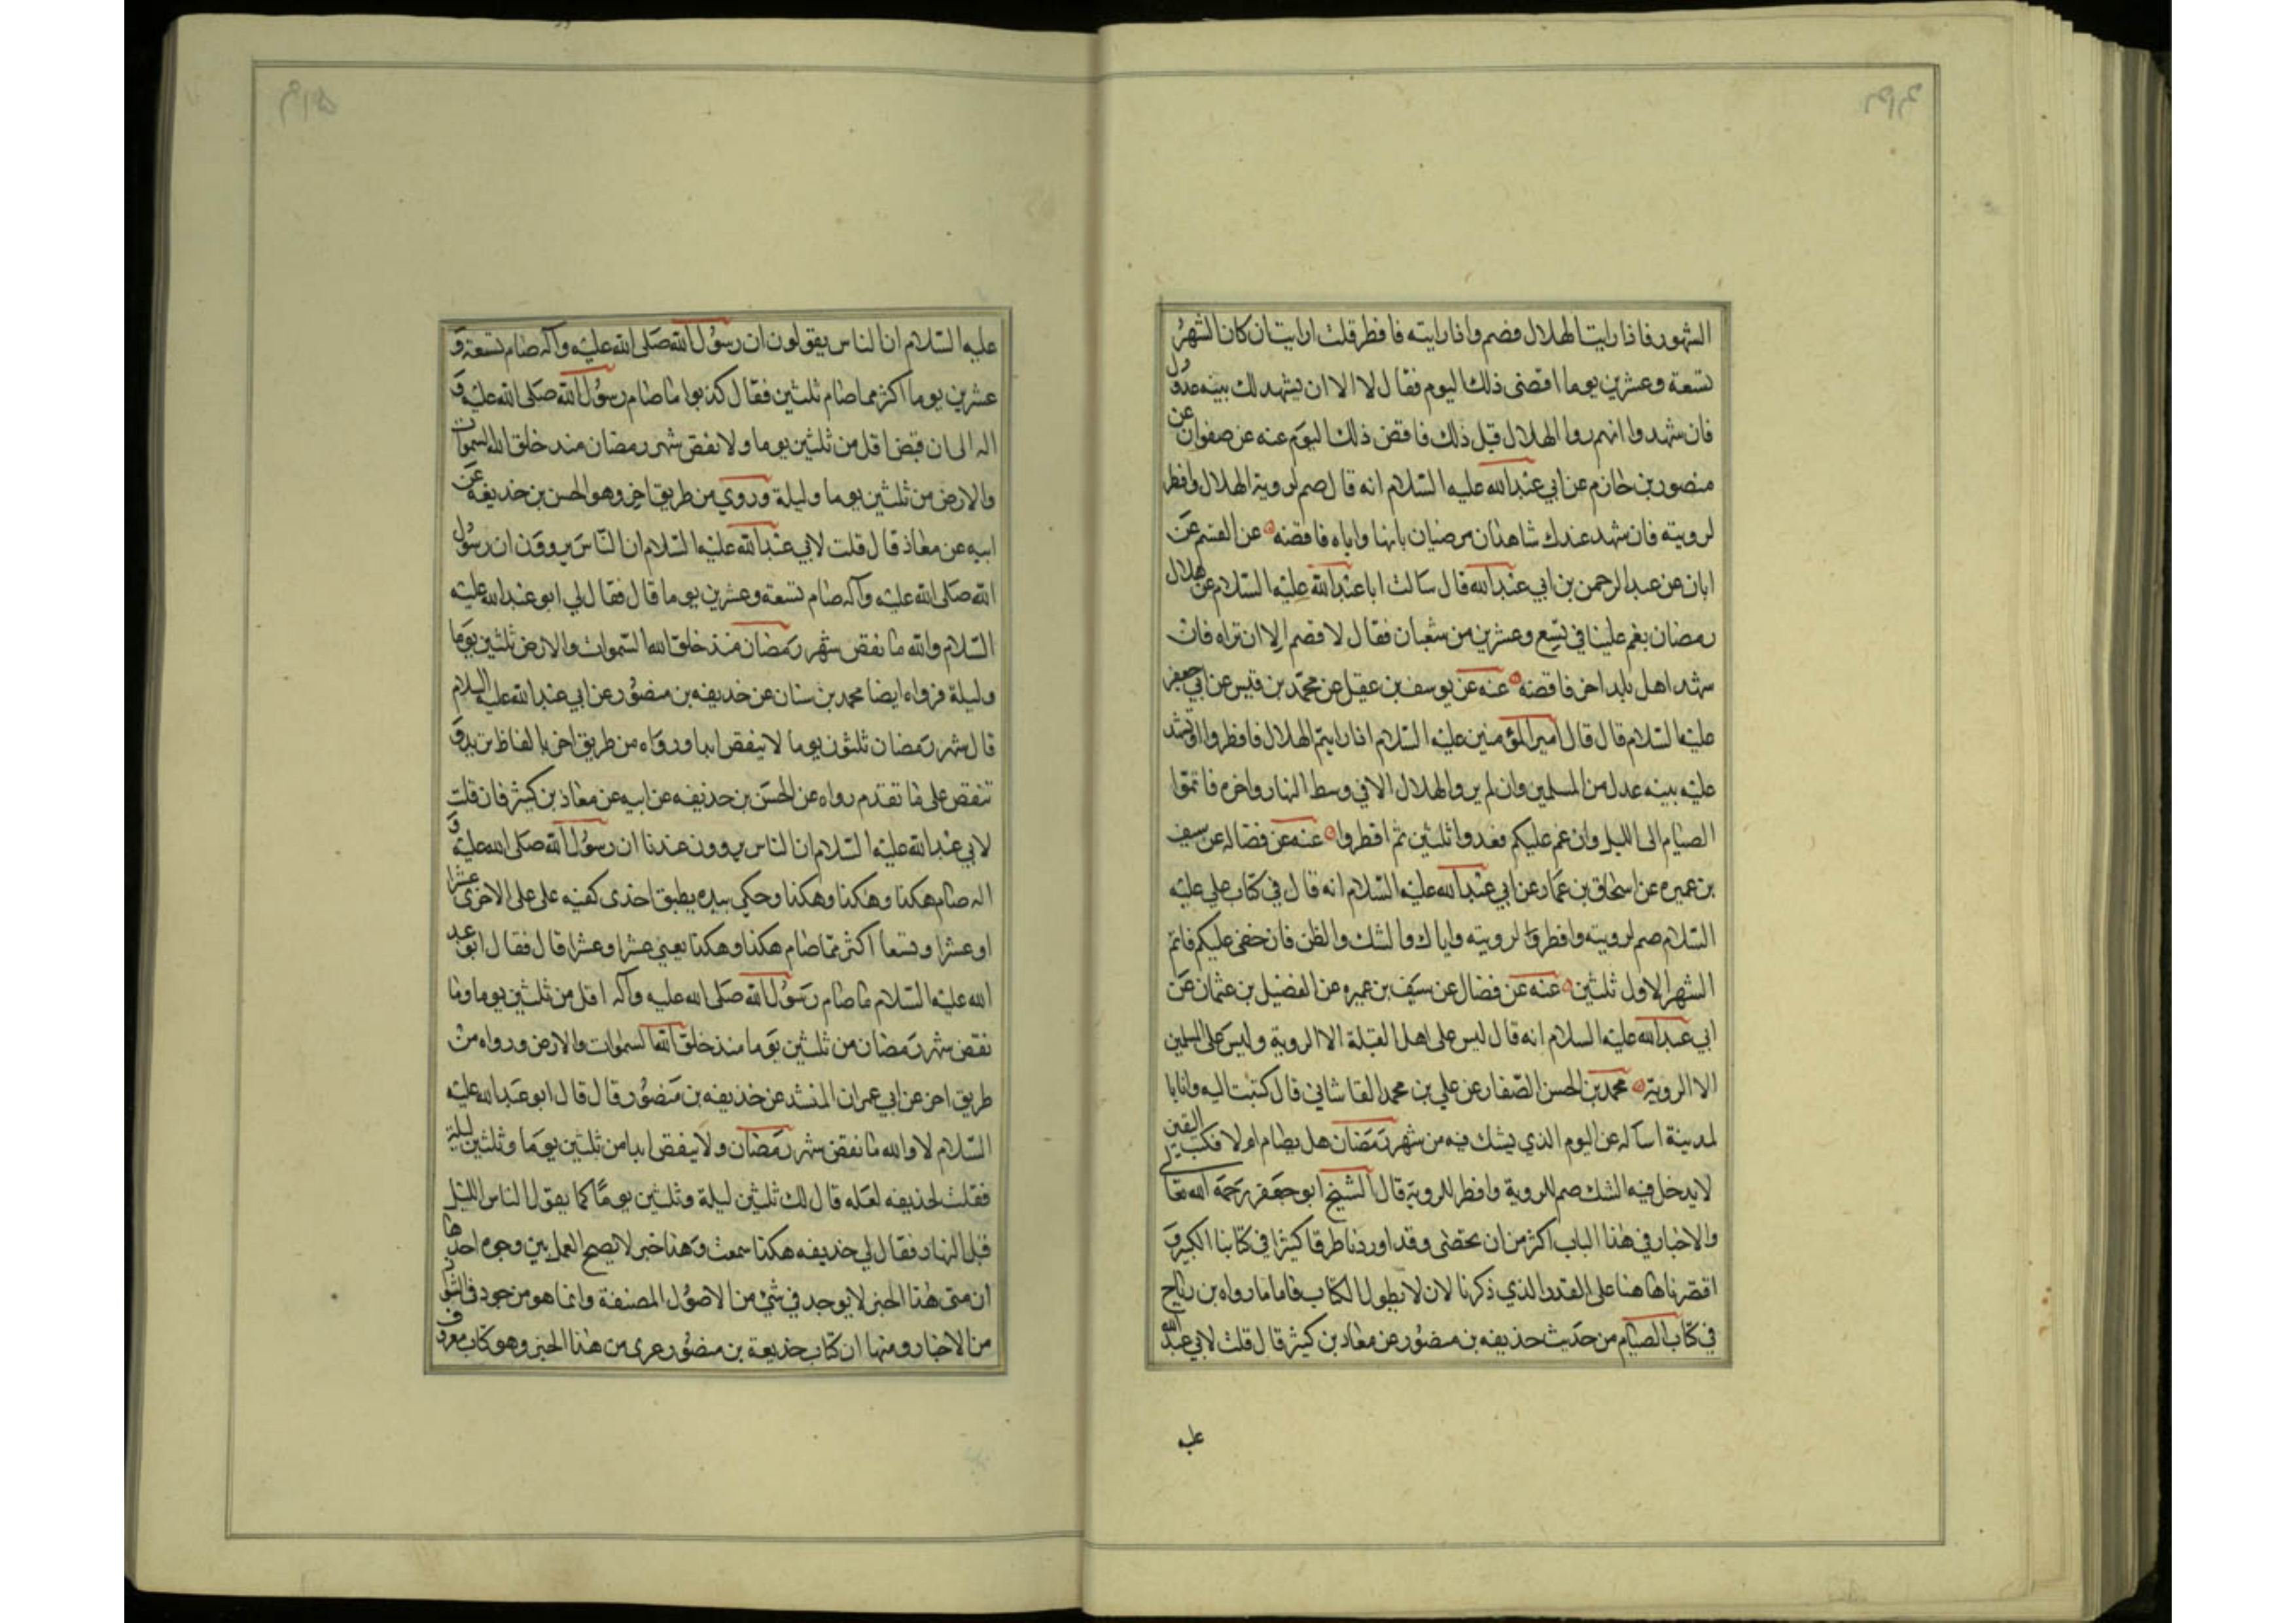 الشهور فاذا رايت الهلال فصم واذا رايته فافطر قلت ارايت ان كان الشهر
تسعة وعشرين يوما اقضى ذلك اليوم فقال لا الا ان يشهد لك بينه عدول
فان شهدوا انهم روا الهلال قبل ذلك فاقض ذلك اليوم عنه عن صفوان عن
منصور بن حازم عن ابي عبدالله عليه السلام انه قال صم لروية الهلال وافطر
لرويته فان شهد عندك شاهدان مرضيان بانها راياه فاقضه عن القسم عن
ابان عن عبد الرحمن بن ابي عبدالله قال سالت ابا عبدالله عليه السلام عن هلال
رمضان يغم علينا في تسع وعشرين من شعبان فقال لا تصم الا ان تراه فان
شهد اهل بلد اخر فاقضه عنه عن يوسف بن عقيل عن محمد بن قيس عن ابي جعفر
عليه السلام قال قال امير المؤمنين عليه السلام اذا رايتم الهلال فافطروا او تشهد
عليه بينه عدل من المسلمين وان لم يروا الهلال الا في وسط النهار واخره فاتموا
الصيام الى الليل وان غم عليكم فعدوا ثلثين ثم افطروا عنه عن فضاله عن سيف
بن عميره عن اسحاق بن عمار عن ابي عبدالله عليه السلام انه قال في كتاب علي عليه
السلام صم لرويته وافطر لرويته واياك والشك والظن فان خفى عليكم فاتم
الشهر الاول ثلثين عنه عن فضال عن سيف بن عميره عن الفضيل بن عثمان عن
ابي عبدالله عليه السلام انه قال ليس على اهل القبلة الا الروية وليس على المسلمين
الا الروية محمد بن الحسن الصفار عن علي بن محمد القاشاني قال كتبت اليه وانا با
لمدينة اساله عن اليوم الذي يشك فيه من شهر رمضان هل يصام او لا فكتب اليقين
لا يدخل فيه الشك صم للروية وافطر للروية قال الشيخ ابو جعفر رحمه الله تعالى
والاخبار في هذا الباب اكثر من ان تحصى وقد اوردنا طرقا كثيرا في كتابنا الكبير و
اقتصرنا هاهنا على القدر الذي ذكرنا لان لا يطول الكتاب فاما ما رواه بن رباح
في كتاب الصيام من حديث حذيفه بن منصور عن معاد بن كثير قال قلت لابي عبد الله
عليه
عليه السلام ان الناس يقولون ان رسول الله صلى الله عليه وآله صام تسعة و
عشرين يوما اكثر مما صام ثلثين فقال كذبوا ما صام رسول الله صلى الله عليه و
اله الى ان قبض اقل من ثلثين يوما ولا نقص شهر رمضان منذ خلق الله السموات
والارض من ثلثين يوما وليلة وروي من طريق اخر وهو الحسن بن حذيفه عن
ابيه عن معاذ قال قلت لابي عبدالله عليه السلام ان الناس يروون ان رسول
الله صلى الله عليه وآله صام تسعة وعشرين يوما قال فقال لي ابو عبدالله عليه
السلام والله ما نقص شهر رمضان منذ خلق الله السموات والارض ثلثين يوما
وليلة فرواه ايضا محمد بن سنان عن حذيفه بن منصور عن ابي عبدالله عليه السلام
قال شهر رمضان ثلثون يوما لا ينقص ابدا ورواه من طريق اخر بالفاظ تزيد و
تنقص على ما تقدم رواه عن الحسن بن حذيفه عن ابيه عن معاذ بن كثير فان قلت
لابي عبدالله عليه السلام ان الناس يروون عندنا ان رسول الله صلى الله عليه و
اله صام هكذا وهكذا وهكذا وحكى بيده يطبق احدى كفيه على على الاخرى عشرا
او عشرا وتسعا اكثر مما صام هكذا وهكذا يعني عشرا وعشرا قال فقال ابو عبد
الله عليه السلام ما صام رسول الله صلى الله عليه وآله اقل من ثلثين يوما وما
نقص شهر رمضان من ثلثين يوما منذ خلق الله السموات والارض ورواه من
طريق اخر عن ابي عمران المنشد عن حذيفه بن منصور قال قال ابو عبدالله عليه
السلام لا والله ما نقص شهر رمضان ولا ينقص ابدا من ثلثين يوما وثلثين ليلة
فقلت لحذيفه لعله قال لك ثلثين ليلة وثلثين يوما كما يقول الناس الليل
قبل النهار فقال لي حذيفه هكذا سمعت وهذا خبر لا يصح العمل بين وجوه احدها
ان متن هذا الخبر لا يوجد في شئ من الاصول المصنفة وانما هو موجود في الشواذ
من الاخبار ومنها ان كتاب حذيفة بن منصور عرى من هذا الخبر وهو كتاب معروف